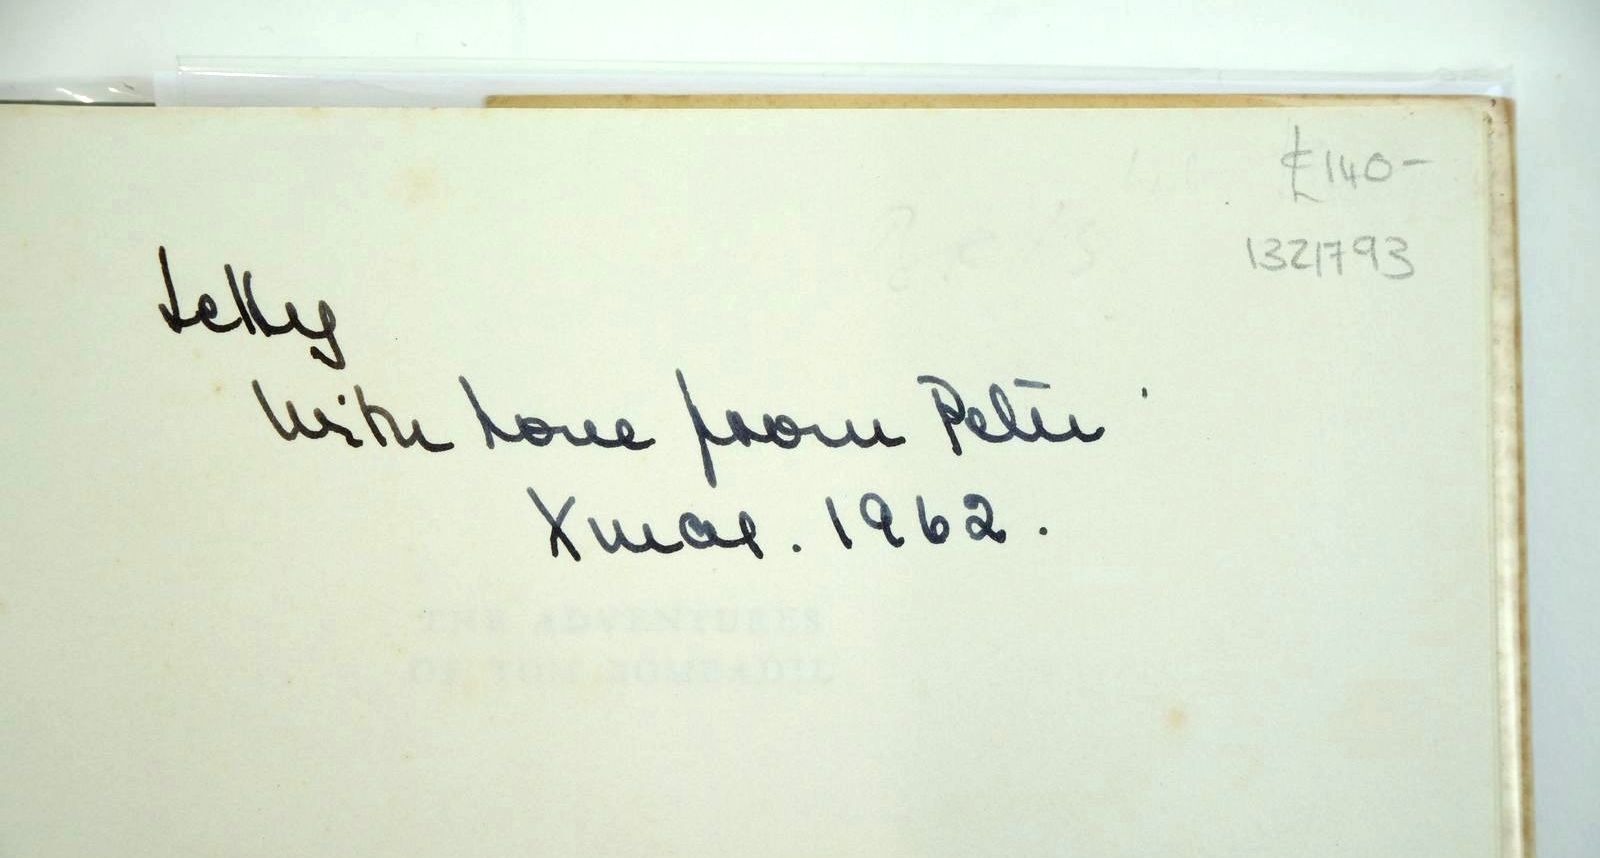 £140-
1321793
Letty
With Love from Peter
Xmas. 1962.
THE ADVENTURES
OF TOM BOMBADIL